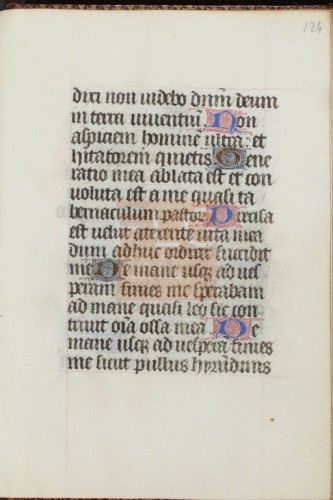 124
dixi non videbo dnm deum
in terra viventiu. Non
aspiciem homine ultra: et
hitatorem quietis. Gene
ratio mea ablata est et con
voluta est a me quasi ta
bernaculum pastor. Precisa
est velut a texente vita mea
dum adhuc ordirer succidit
me De mane usq ad ves
peram finies me sperabam
ad mane quasi leo sic con
trivit oia ossa mea. De
mane usq ad vespera finies
me sicut pullus hyrundinis